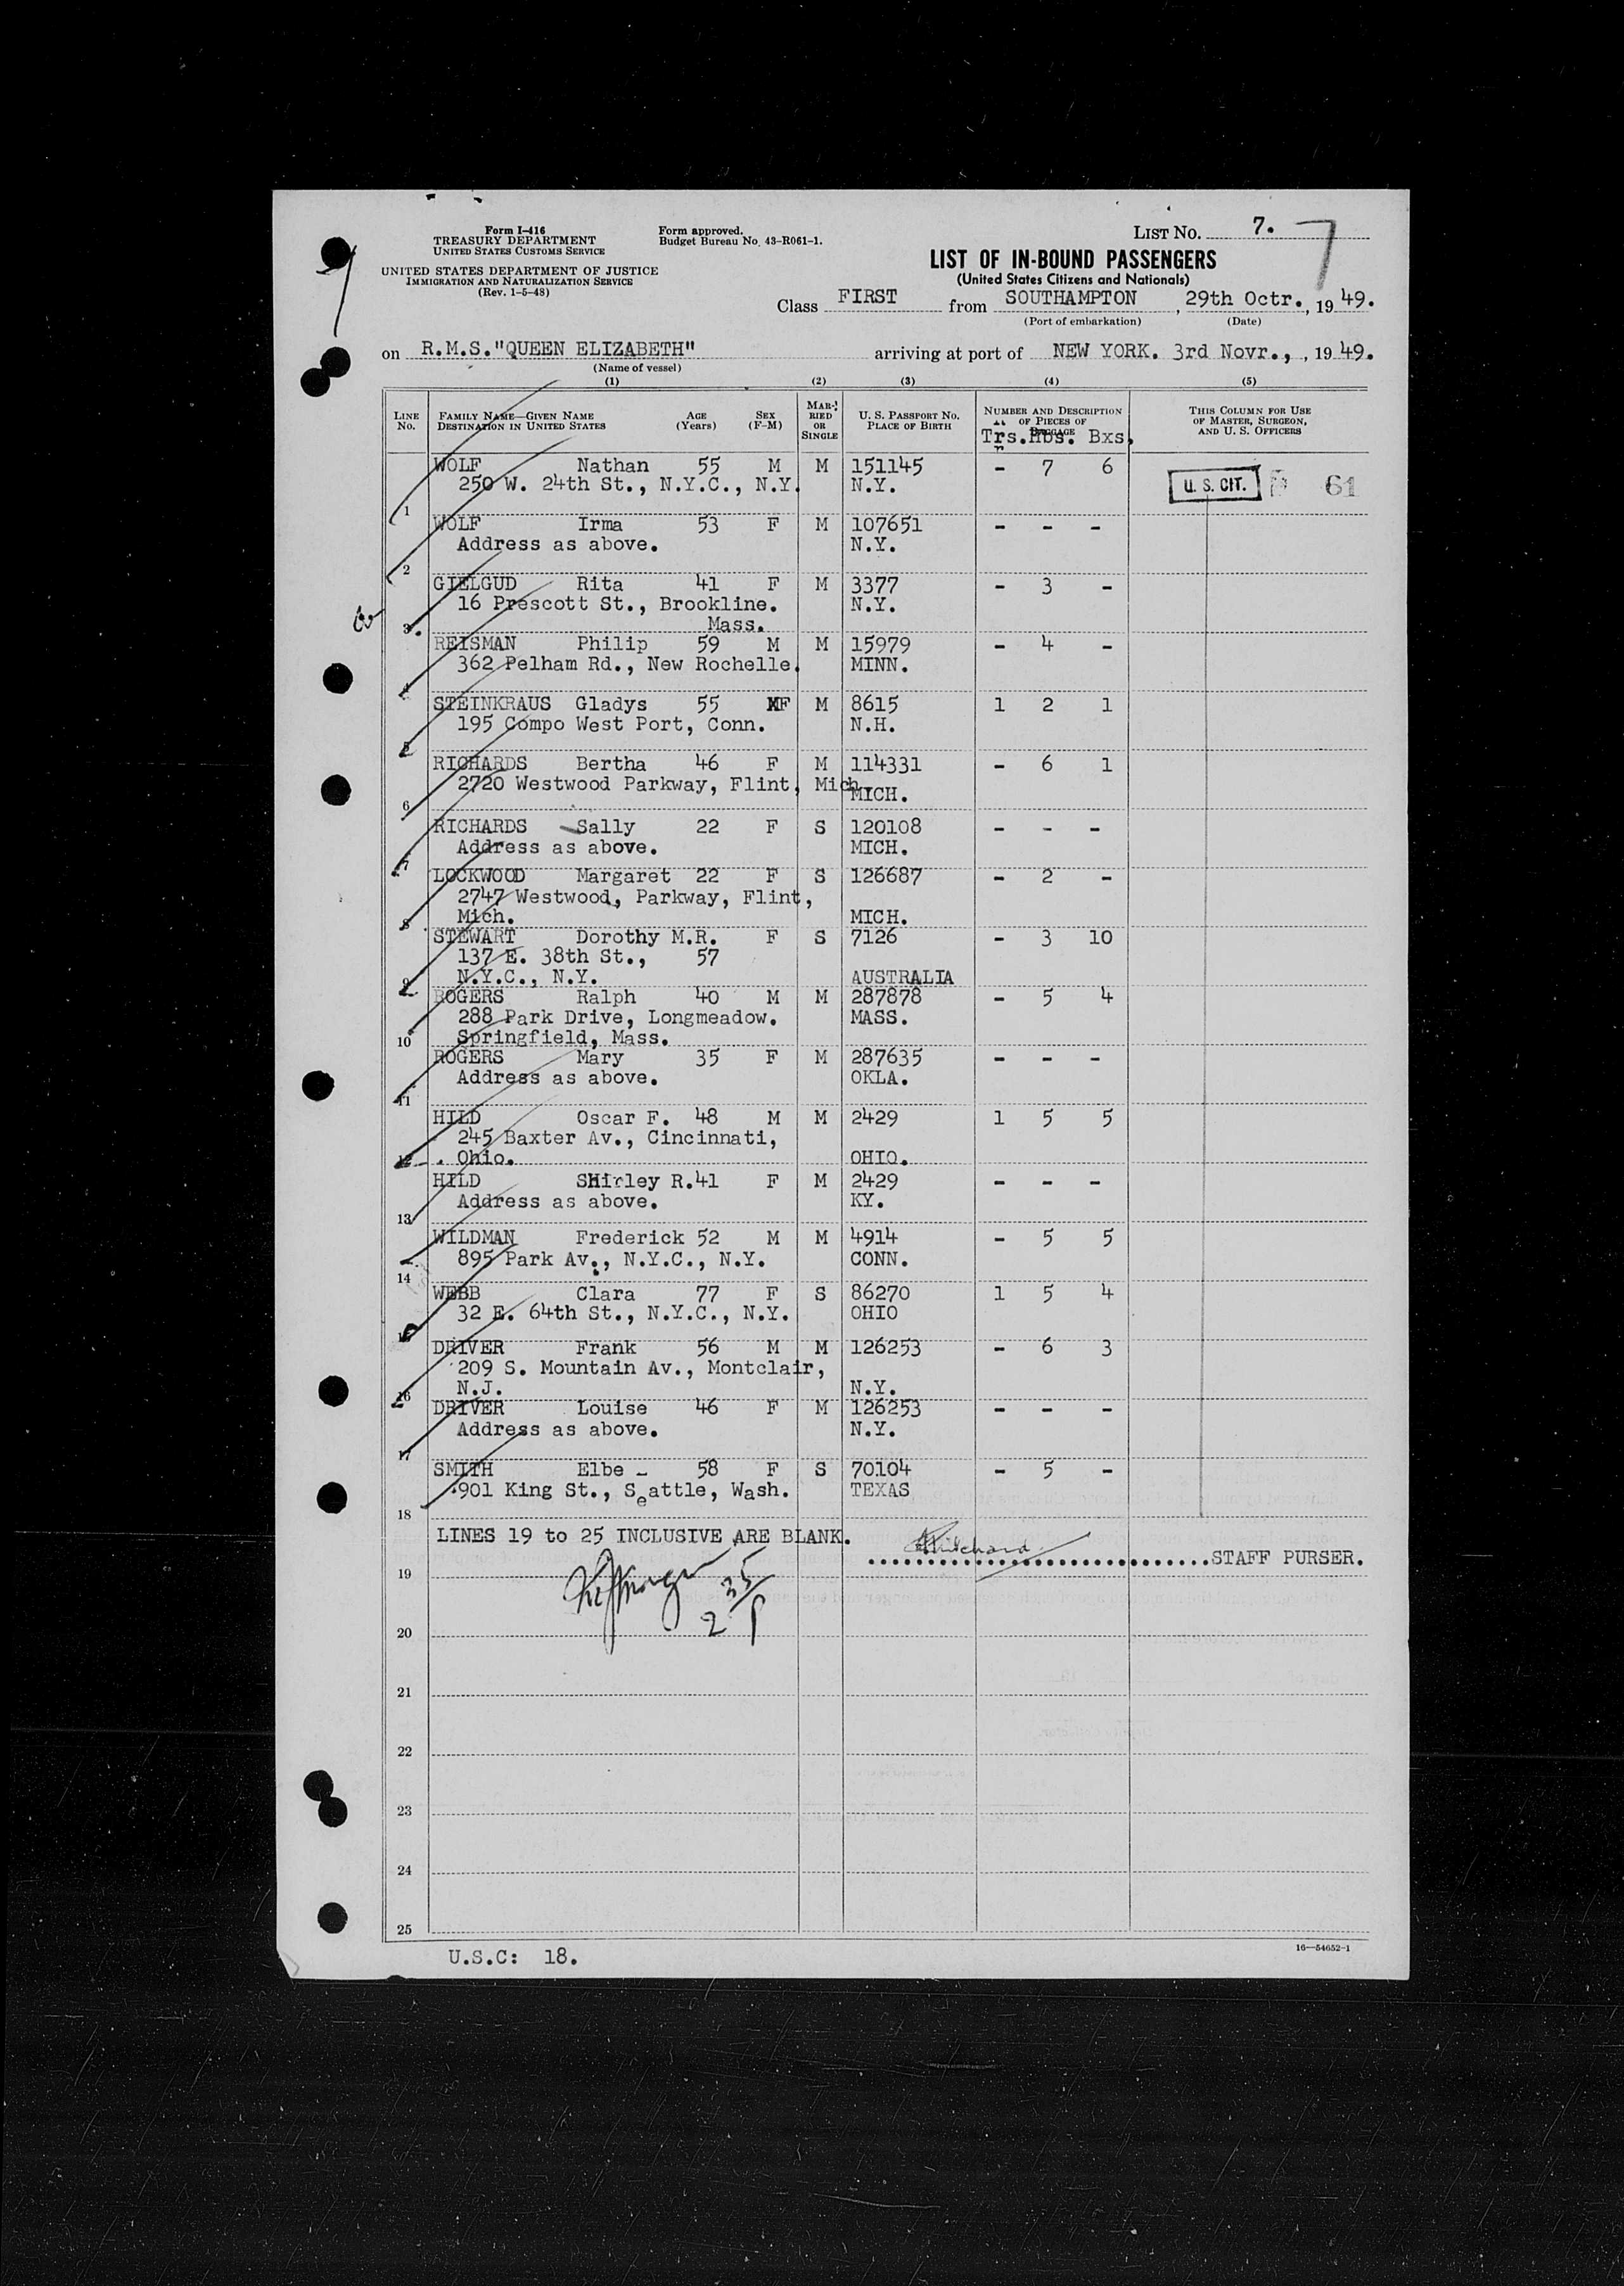 Form I-416
TREASURY DEPARTMENT
UNITED STATES CUSTOMS SERVICE
UNITED STATES DEPARTMENT OF JUSTICE
IMMIGRATION AND NATURALIZATION SERVICE
(Rev. 1-5-48)
Form approved.
Budget Bureau No. 43-R061-1.
LIST NO. 7. 7
LIST OF IN-BOUND PASSENGERS
(United States Citizens and Nationals)
Class FIRST from SOUTHAMPTON, 29th Octr., 1949.
(Port of embarkation) (Date)
on R.M.S."QUEEN ELIZABETH" arriving at port of NEW YORK. 3rd Novr., , 1949.
(Name of vessel)
(1) (2) (3) (4) (5)
LINE NO. FAMILY NAME—GIVEN NAME DESTINATION IN UNITED STATES AGE (Years) SEX (F-M) MARRIED OR SINGLE U. S. PASSPORT NO. PLACE OF BIRTH NUMBER AND DESCRIPTION OF PIECES OF BAGGAGE THIS COLUMN FOR USE OF MASTER, SURGEON, AND U. S. OFFICERS
Trs. Hbs. Bxs.
WOLF Nathan 55 M M 151145 - 7 6
250 W. 24th St., N.Y.C., N.Y. N.Y. U. S. CIT. 61
1
WOLF Irma 53 F M 107651 - - -
Address as above. N.Y.
2
GIELGUD Rita 41 F M 3377 - 3 -
16 Prescott St., Brookline. N.Y.
3 Mass.
REISMAN Philip 59 M M 15979 - 4 -
362 Pelham Rd., New Rochelle. MINN.
4
STEINKRAUS Gladys 55 MF M 8615 1 2 1
195 Compo West Port, Conn. N.H.
5
RICHARDS Bertha 46 F M 114331 - 6 1
2720 Westwood Parkway, Flint, Mich. MICH.
6
RICHARDS Sally 22 F S 120108 - - -
Address as above. MICH.
7
LOCKWOOD Margaret 22 F S 126687 - 2 -
2747 Westwood, Parkway, Flint,
8 Mich. MICH.
STEWART Dorothy M.R. F S 7126 - 3 10
137 E. 38th St., 57
9 N.Y.C., N.Y. AUSTRALIA
ROGERS Ralph 40 M M 287878 - 5 4
288 Park Drive, Longmeadow. MASS.
10 Springfield, Mass.
ROGERS Mary 35 F M 287635 - - -
Address as above. OKLA.
11
HILD Oscar F. 48 M M 2429 1 5 5
245 Baxter Av., Cincinnati,
12 Ohio. OHIO.
HILD SHirley R. 41 F M 2429 - - -
Address as above. KY.
13
WILDMAN Frederick 52 M M 4914 - 5 5
895 Park Av., N.Y.C., N.Y. CONN.
14
WEBB Clara 77 F S 86270 1 5 4
32 E. 64th St., N.Y.C., N.Y. OHIO
15
DRIVER Frank 56 M M 126253 - 6 3
209 S. Mountain Av., Montclair,
16 N.J. N.Y.
DRIVER Louise 46 F M 126253 - - -
Address as above. N.Y.
17
SMITH Elbe - 58 F S 70104 - 5 -
901 King St., Seattle, Wash. TEXAS
18
LINES 19 to 25 INCLUSIVE ARE BLANK.
STAFF PURSER.
19
20
21
22
23
24
25
U.S.C: 18.
16—54652-1